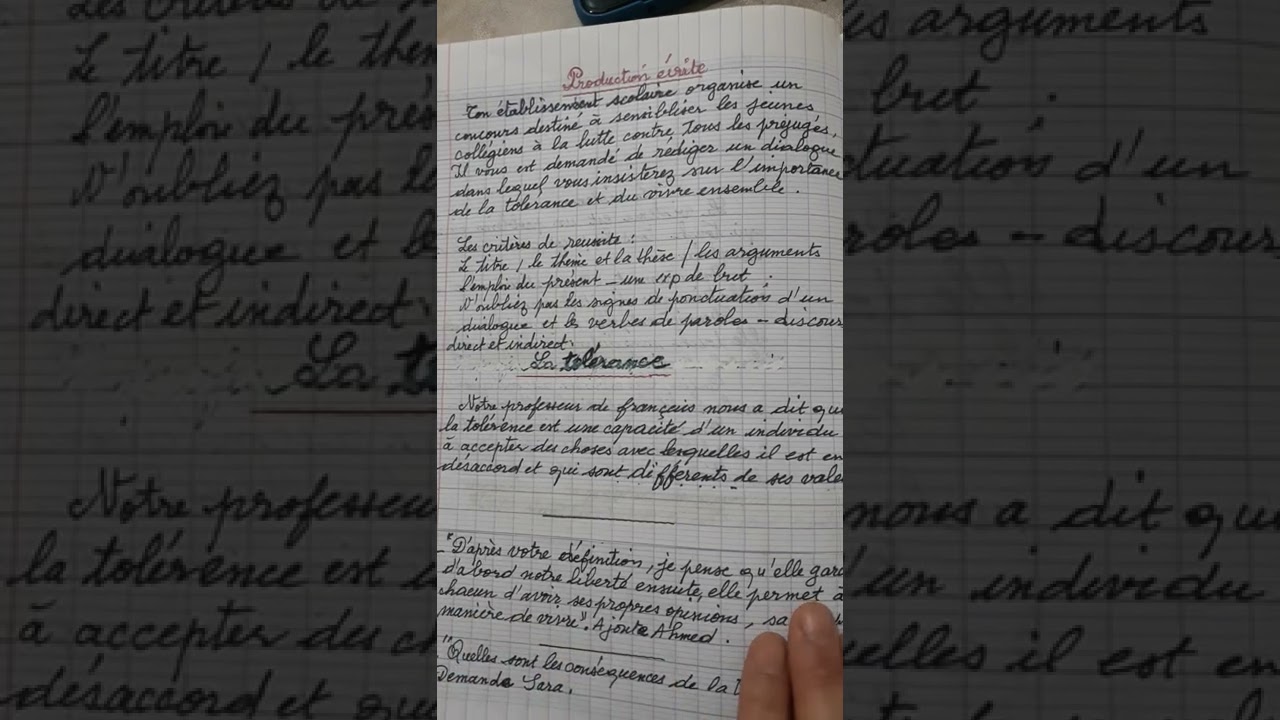 Production écrite
Ton établissement scolaire organise un
concours destiné à sensibliser les jeunes
collégiens à la lutte contre tous les préjugés.
Il vous est demandé de rédiger un dialogue
dans lequel vous insisterez sur l'importance
de la tolérance et du vivre ensemble.
Les critères de reussite :
Le titre / le thème et la thèse / les arguments
l'emploi du présent - une exp de but.
N'oubliez pas les signes de ponctuation d'un
dialogue et les verbes de paroles - discours
direct et indirect.
La tolérance
Notre professeur de français nous a dit que
la tolérence est une capacité d'un individu
à accepter des choses avec lesquelles il est en
désaccord et qui sont différents de ses vale
- "D'après votre définition, je pense qu'elle gar
d'abord notre liberté ensuite, elle permet à
chacun d'avoir ses propres opinions, sa
manière de vivre". Ajoute Ahmed.
"Quelles sont les conséquences de la
Demande Sara.